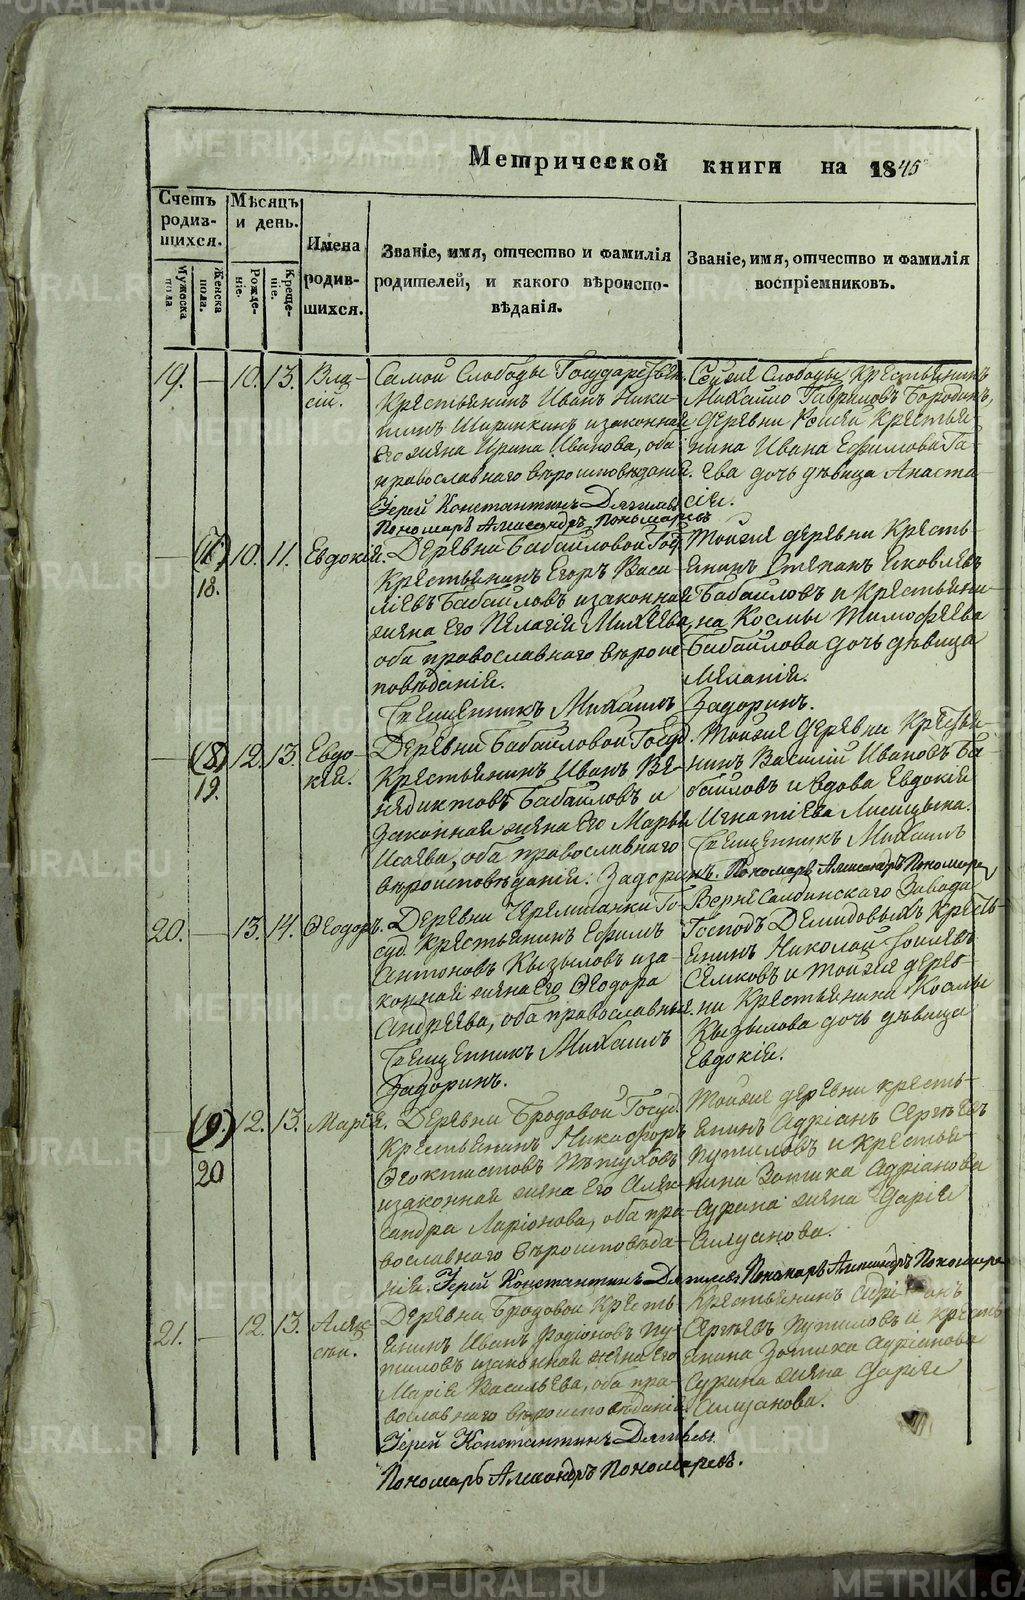 Метрической книги на 1845
Счетъ родившихся.
Мужеска пола.
Женска пола.
Мѣсяцъ и день.
Рожденіе.
Крещеніе.
Имена родившихся.
Званіе, имя, отчество и фамилія родителей, и какого вѣроисповѣданія.
Званіе, имя, отчество и фамилія воспріемниковъ.
19. — 10. 13. Вла-
сій.
Самой Слободы Государствен.
Крестьянинъ Иванъ Ники-
тинъ и законная
его жена Ирина Иванова, оба
православнаго вѣроисповѣданія.
Іерей Константинъ Дягилевъ
Пономарь Александръ Пономаревъ
Слободы Крестьянинъ
Михайло Гавриловъ Бородинъ,
деревни крестья-
нина Ивана Ефимова
дочь дѣвица Анаста-
сія.
— 10. 11. Евдокія.
18.
Деревни Бабайловой Гос.
Крестьянинъ Егоръ Васи-
ліевъ Бабайловъ и законная
жена его Пелагія Михѣева,
оба православнаго вѣроис-
повѣданія.
Священникъ Михаилъ Задоринъ.
Тойже деревни Кресть-
янинъ Степанъ Яковлевъ
Бабайловъ и Крестьяни-
на Космы Тимофѣева
Бабайлова дочь дѣвица
Меланія.
— (18) 12. 13. Евдо-
кія.
19.
Деревни Бабайловой Госуд.
Крестьянинъ Иванъ Ве-
недиктовъ Бабайловъ и
законная жена его Марья
Исаева, оба православнаго
вѣроисповѣданія.
Тойже деревни Крестья-
нинъ Василій Ивановъ Ба-
байловъ и вдова Евдокія
Игнатіева Лисицына.
Священникъ Михаилъ
Задоринъ. Пономарь Александръ Пономарев
20. — 13. 14. Ѳеодоръ.
Деревни Черемшанки Го-
суд. Крестьянинъ Ефимъ
Антоновъ Кызыловъ и за-
конная жена его Ѳеодора
Андреева, оба православныя.
Священникъ Михаилъ
Задоринъ.
Верхнесалдинскаго Завода
Господъ Демидовыхъ Кресть-
янинъ Николай
и тойже дерев-
ни Крестьянина Космы
Кызылова дочь дѣвица
Евдокія.
(9.) 12. 13. Марія.
20
Деревни Бродовой Госуд.
Крестьянинъ Никифоръ
Ѳеоктистовъ Пѣтуховъ
и законная жена его Алек-
сандра Ларіонова, оба пра-
вославнаго вѣроисповѣда-
нія. Іерей Константинъ Дягилевъ Пономарь Александръ Пономарев
Тойже деревни кресть-
янинъ Адріанъ Сергѣевъ
Путиловъ и крестья-
нина Зотика Адріанова
Сурина жена Дарія
21. — 12. 13. Алек-
сѣй.
Деревни Бродовой Кресть-
янинъ Иванъ Родіоновъ Пу-
тиловъ и законная жена его
Марія Васильева, оба пра-
вославнаго вѣроисповѣданія
Іерей Константинъ Дягилевъ.
Пономарь Александръ Пономаревъ.
Крестьянинъ Адріанъ
Сергѣевъ Путиловъ и кресть-
янина Зотика Адріанова
Сурина жена Дарія